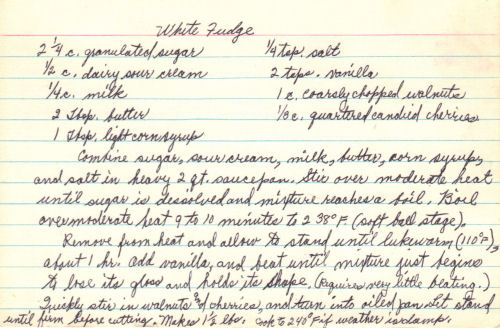 White Fudge
2 1/4 c. granulated sugar
1/2 c. dairy sour cream
1/4 c. milk
2 Tbsp. butter
1 Tbsp. light corn syrup
1/4 tsp salt
2 tsps. vanilla
1 c. coarsly chopped walnuts
1/3 c. quartered candied cherries
Combine sugar, sour cream, milk, butter, corn syrup,
and salt in heavy 2 qt. saucepan. Stir over moderate heat
until sugar is dessolved and mixture reaches a boil. Boil
over moderate heat 9 to 10 minutes to 238°F. (soft ball stage).
Remove from heat and allow to stand until lukewarm (110°F),
about 1 hr. Add vanilla, and beat until mixture just begins
to lose its gloss and holds its shape. (Requires very little beating.)
Quickly stir in walnuts & cherries, and turn into oiled pan. Let stand
until firm before cutting. Makes 1 1/2 lbs. Cook to 240°F if weather is damp.